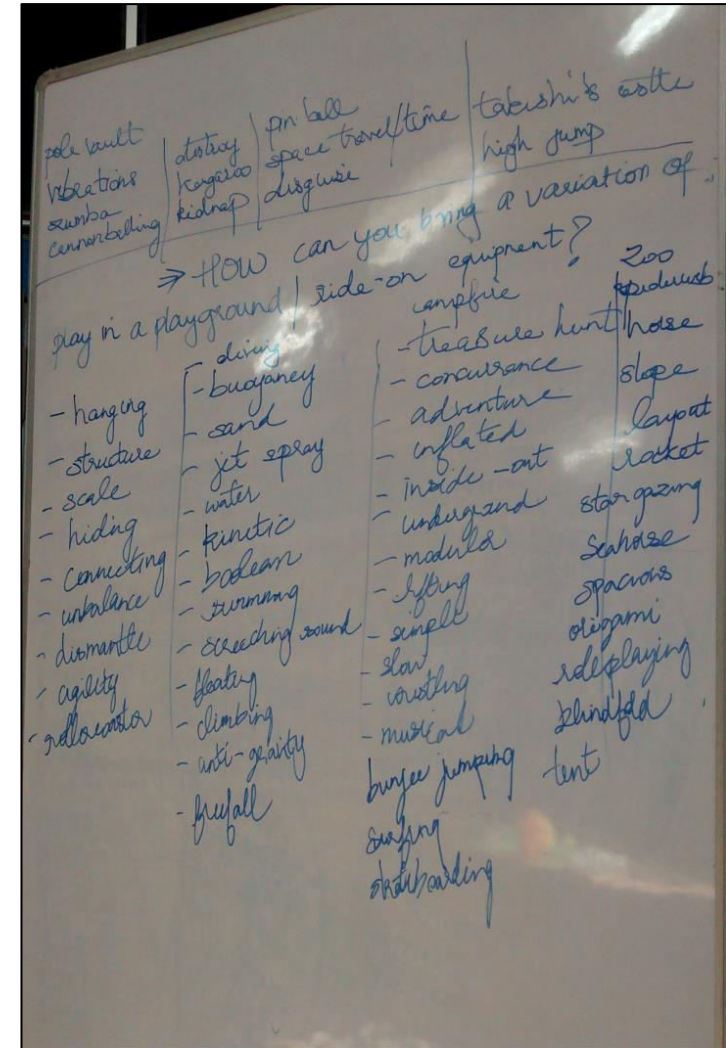 pole vault
vibrations
zumba
cannonballing
destroy
kangaroo
kidnap
pin ball
space travel/time
disguise
takeshi's castle
high jump
⇒ HOW can you bring a variation of
play in a playground / ride-on equipment?
- hanging
- structure
- scale
- hiding
- connecting
- unbalance
- dismantle
- agility
- rollercoaster
- diving
- buoyancy
- sand
- jet spray
- water
- kinetic
- boolean
- swimming
- screeching sound
- floating
- climbing
- anti-gravity
- freefall
campfire
- treasure hunt
- concurrance
- adventure
- inflated
- inside-out
- underground
- modular
- lifting
- simple
- slow
- wrestling
- musical
bunjee jumping
surfing
skateboarding
zoo
spiderweb
horse
slope
layout
rocket
stargazing
seahorse
spacious
origami
roleplaying
blindfold
tent